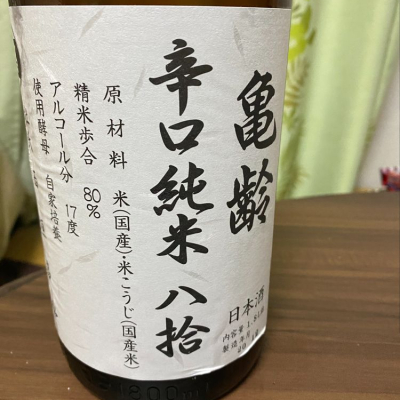 亀齢
辛口純米 八拾
原材料 米(国産)・米こうじ(国産米)
精米歩合 80%
アルコール分 17度
使用酵母 自家培養
日本酒
内容量 1.8L
製造年月